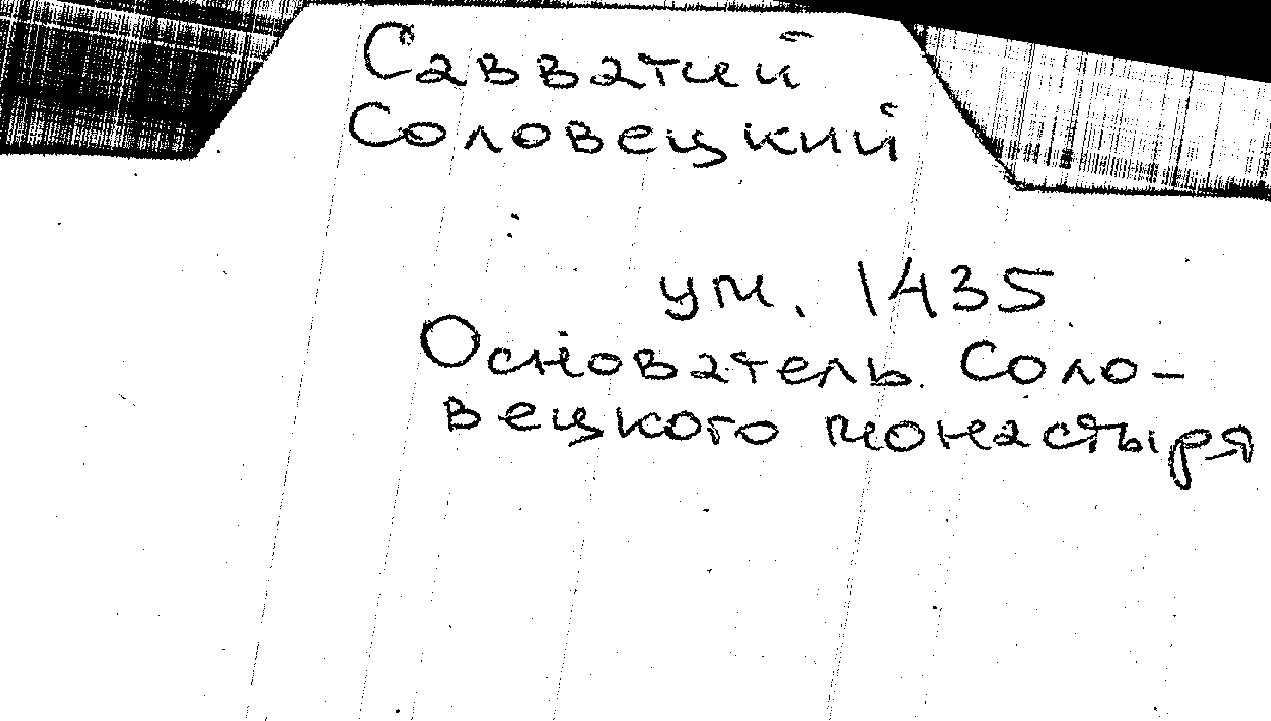 Савватий
Соловецкий
ум. 1435
Основатель Соло-
вецкого монастыря